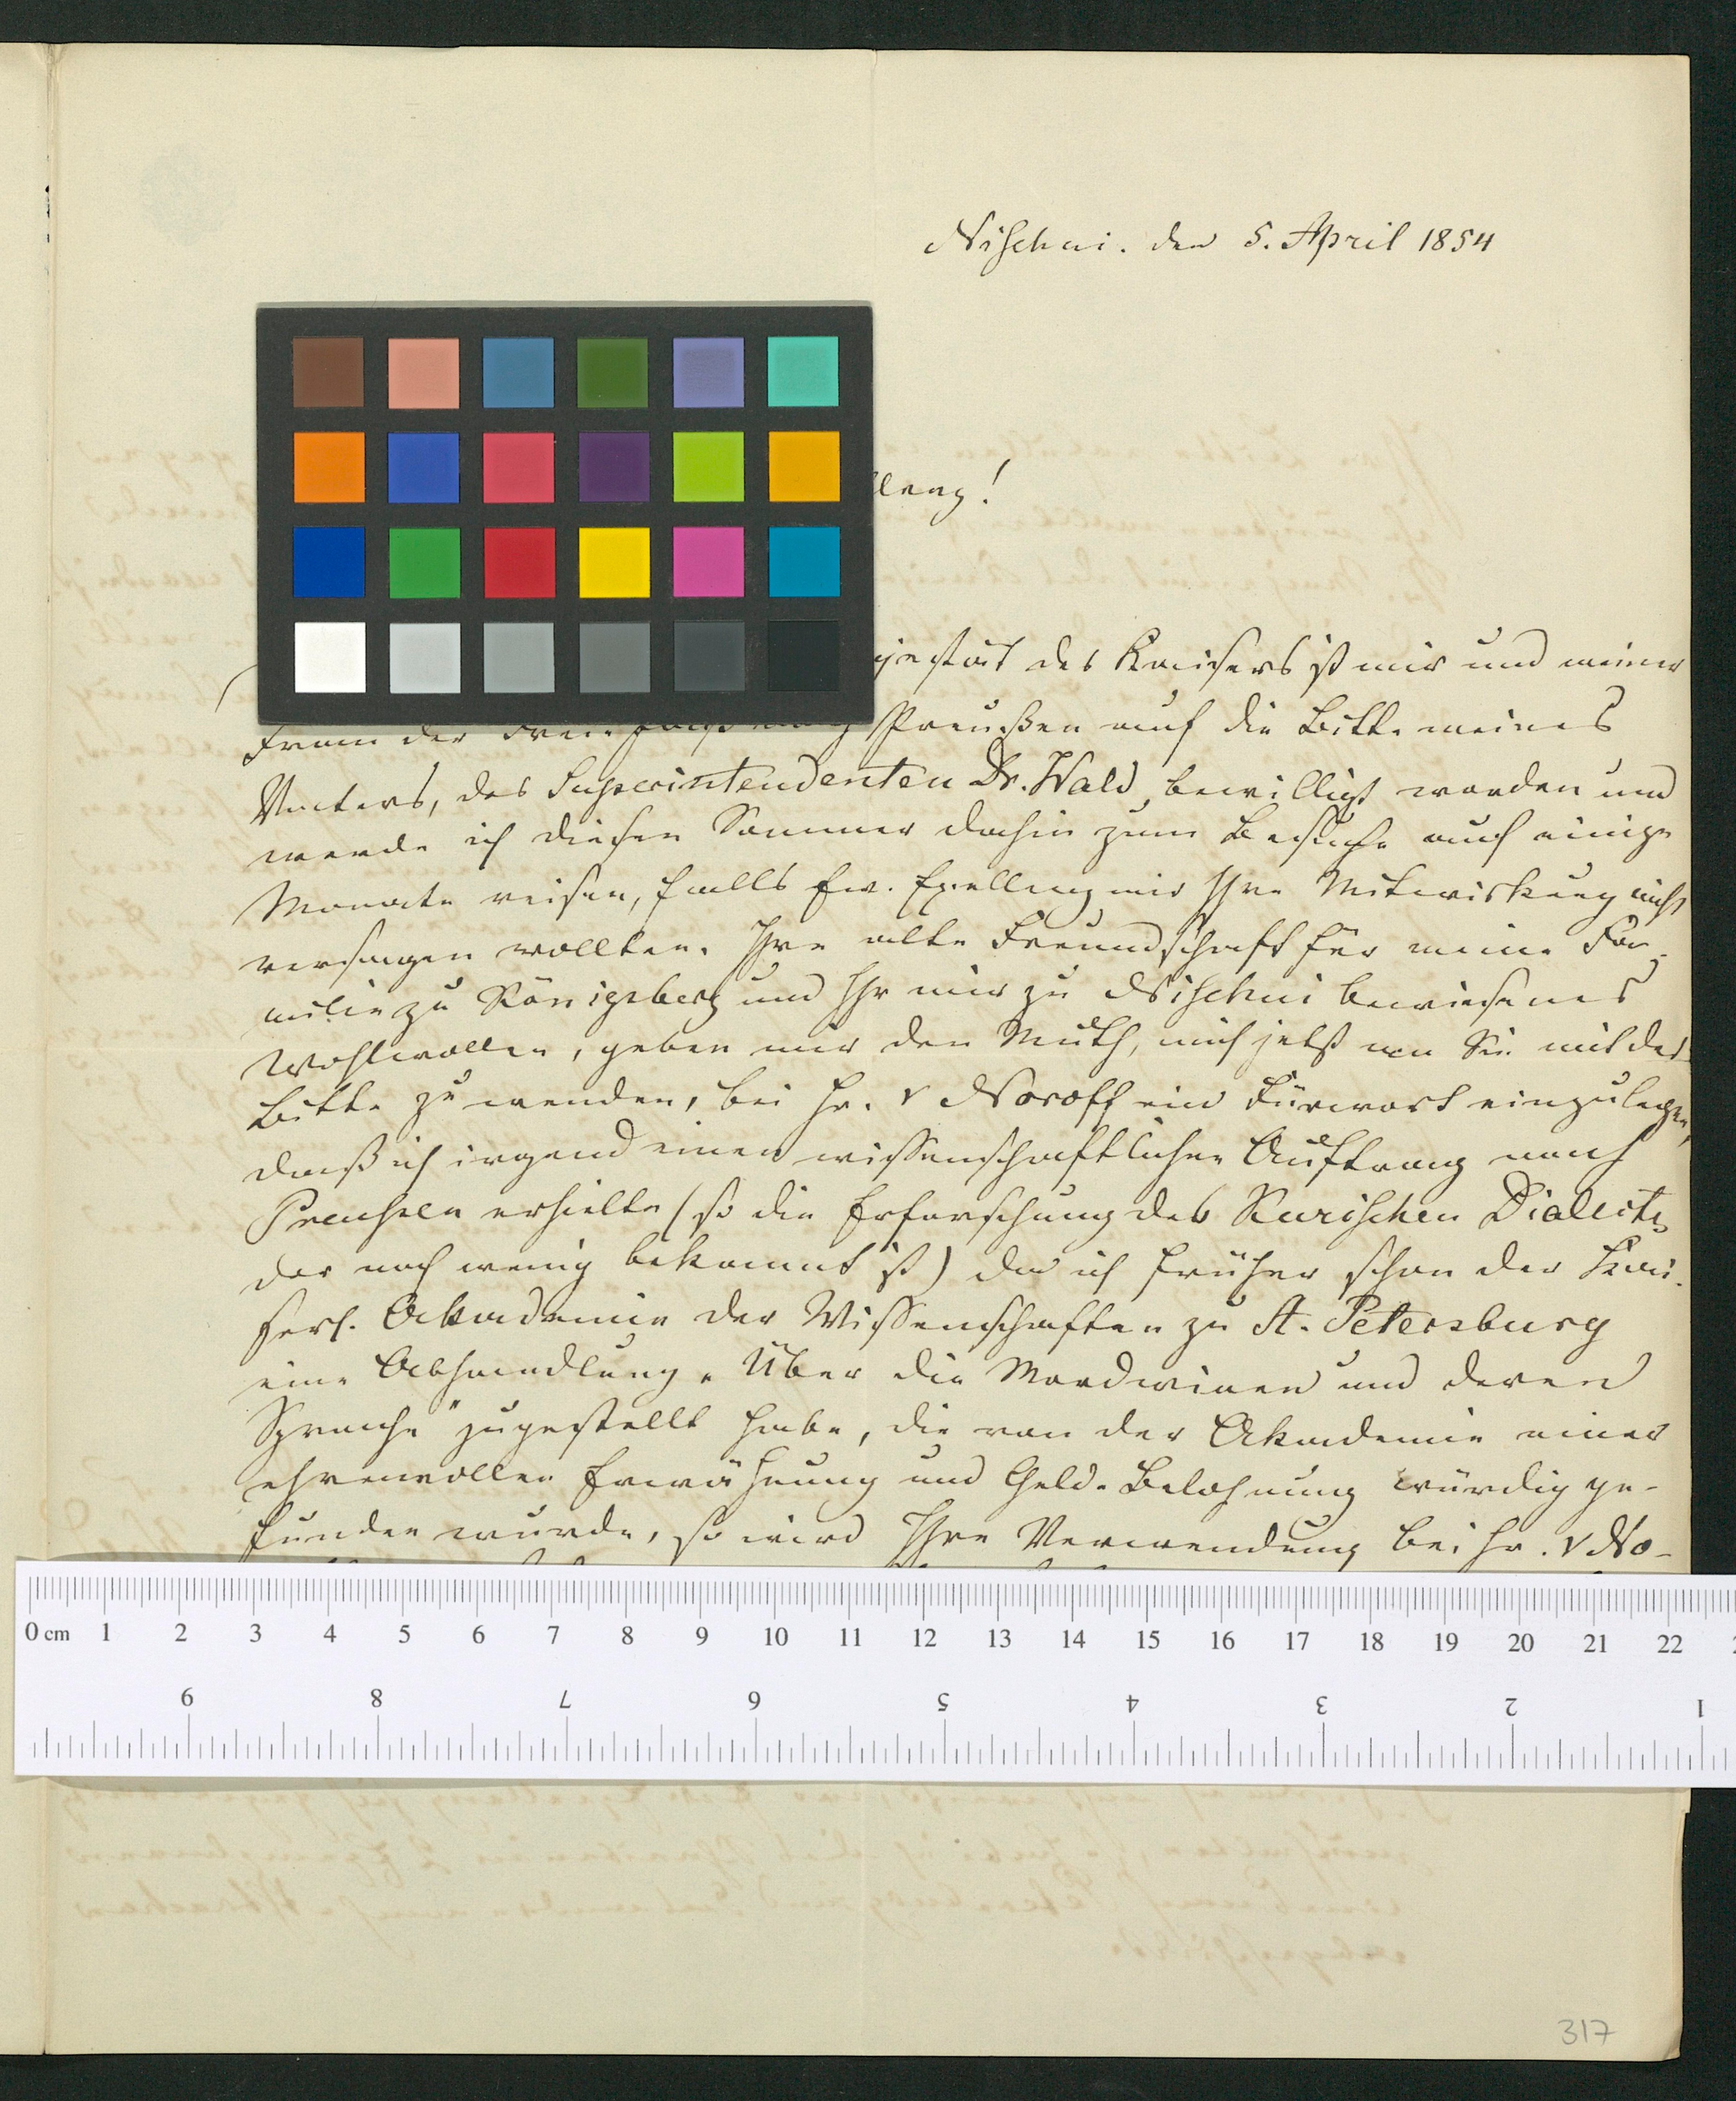 Nischni. den 5. April 1854
llenz!
jestät des Kaisers ist mir und meiner
Frau der Preußen auf die Bitte meines
Vaters, des Superintendenten Dr. Wald, bewilligt worden und
werde ich diesen Sommer dahin zum Besuche auf einige
Monate reisen, falls Ew. Exellenz mir Ihre Mitwirkung nicht
versagen wollten. Ihre alte Freundschaft für meine Fa-
milie zu Königsberg und Ihr mir zu Nischni bewiesenes
Wohlwollen, geben mir den Muth, mich jetzt an Sie mit der
Bitte zu wenden, bei Hr. v Noroff ein Fürwort einzulegen,
daß ich irgend einen wissenschaftlichen Auftrag nach
Preussen erhielte (so die Erforschung des Kurischen Dialects
der noch wenig bekannt ist) da ich früher schon der Kai-
serl. Akademie der Wissenschaften zu St. Petersburg
eine Abhandlung „Über die Mordwinen und deren
Sprache" zugestellt habe, die von der Akademie einer
ehrenvollen Erwähnung und Geld-Belohnung würdig ge-
funden wurde, so wird Ihre Verwendung bei Hr. v No-
0 cm 1 2 3 4 5 6 7 8 9 10 11 12 13 14 15 16 17 18 19 20 21 22
9 8 7 6 5 4 3 2 1
317